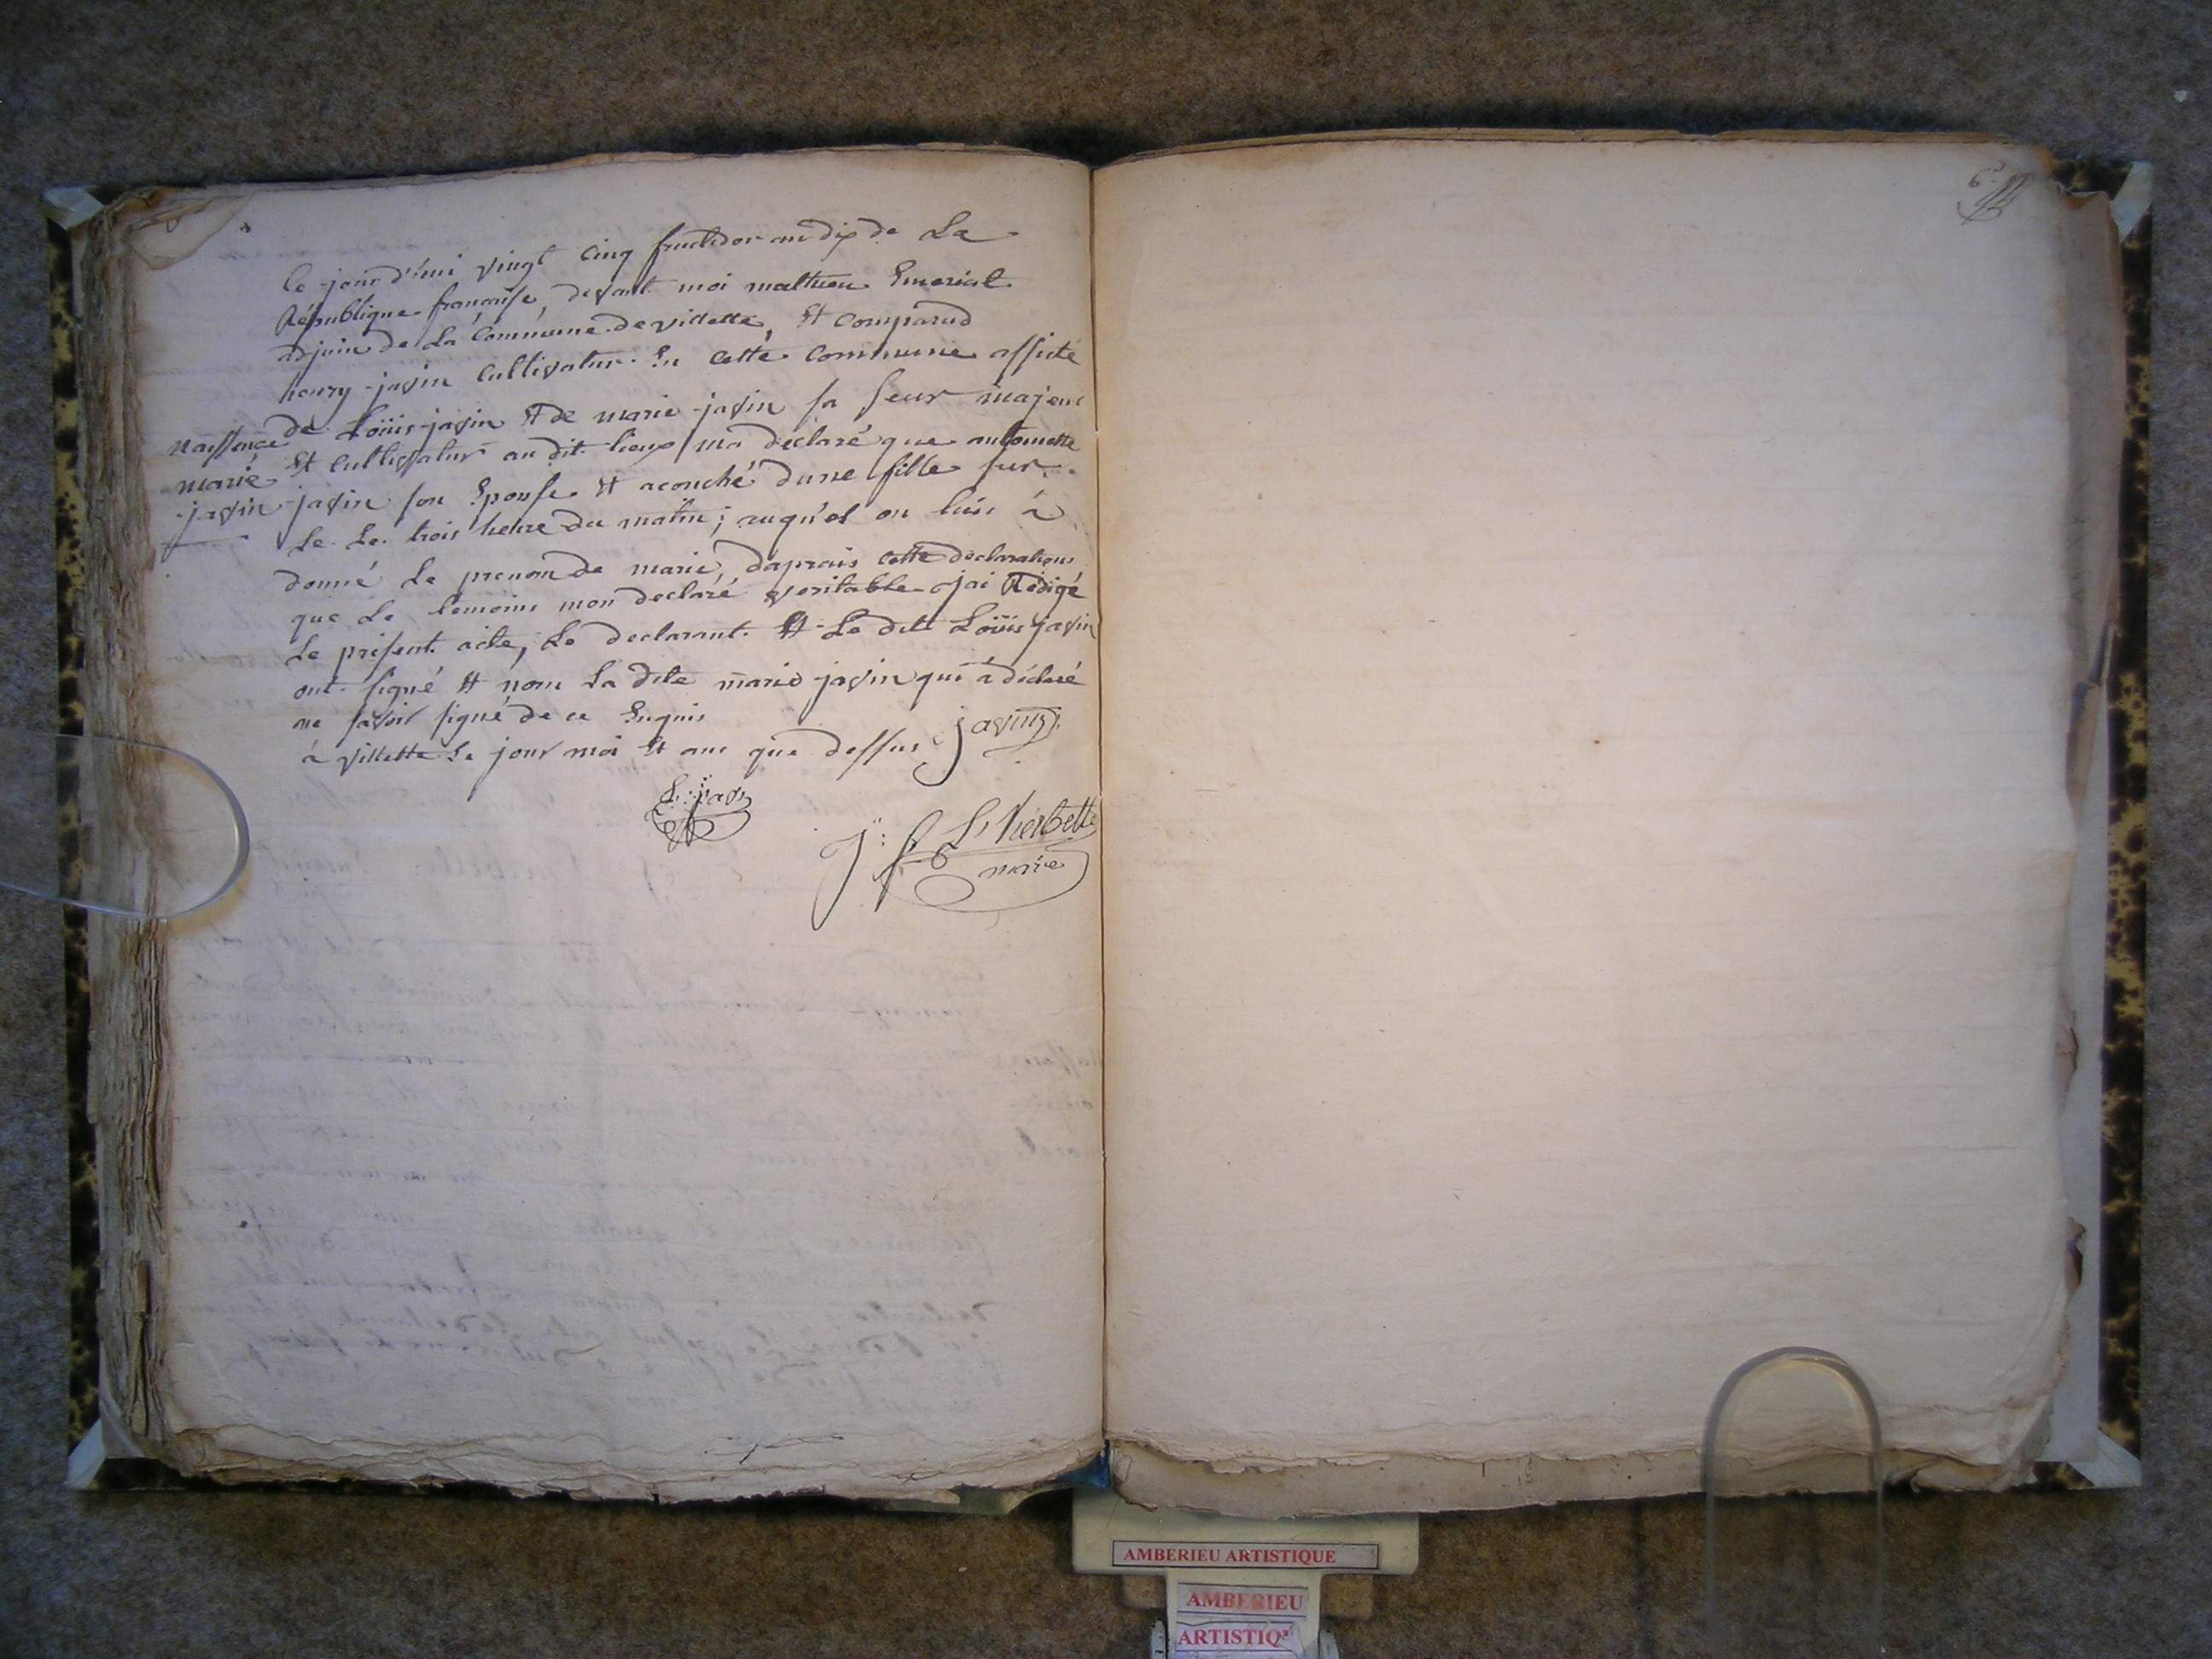 6
Ce jour d'hui vingt cinq fructidor an dix de La
République française, devant moi mathieu Emeriat
adjoin de La Commune de villette, Et comparud
henry javin Cultivatur En cette Commune assisté
de Loüis javin Et de marie javin sa seur majeur
Et cultivatur au dit lieux ma déclaré que antoinette
javin son Epouse Et acouché dune fille sur
Le Le trois heure du matin; auqu'el on luis à
donné Le prenon de marie, daprais cette declarations
que Le temoins mon declaré veritable jai Rédigé
Le present acte, Le declarant Et Le dit Loüis javin
ont signé Et nom La dite marie javin qui à déclaré
ne savoir signé de ce Enquis
à villette Le jour moi Et ans que dessus
naissence
marie
javin
javin
L. javin
L'herbette
maire
AMBERIEU ARTISTIQUE
AMBERIEU
ARTISTIQ